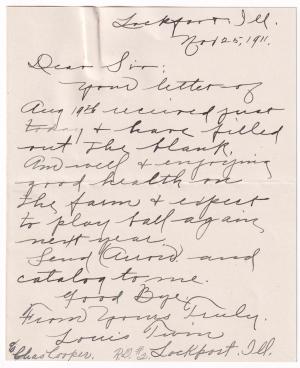 Lockport, Ill.
Nov 25, 1911.
Dear Sir:
Your letter of
Aug 19th recieved just
today & have filled
out the blank.
Am well & enjoying
good health on
the farm & expect
to play ball again
next year.
Send and
catalog to me.
Good Bye
From Yours Truly.
Louis
% Chas Cooper. R.D. #2 Lockport, Ill.